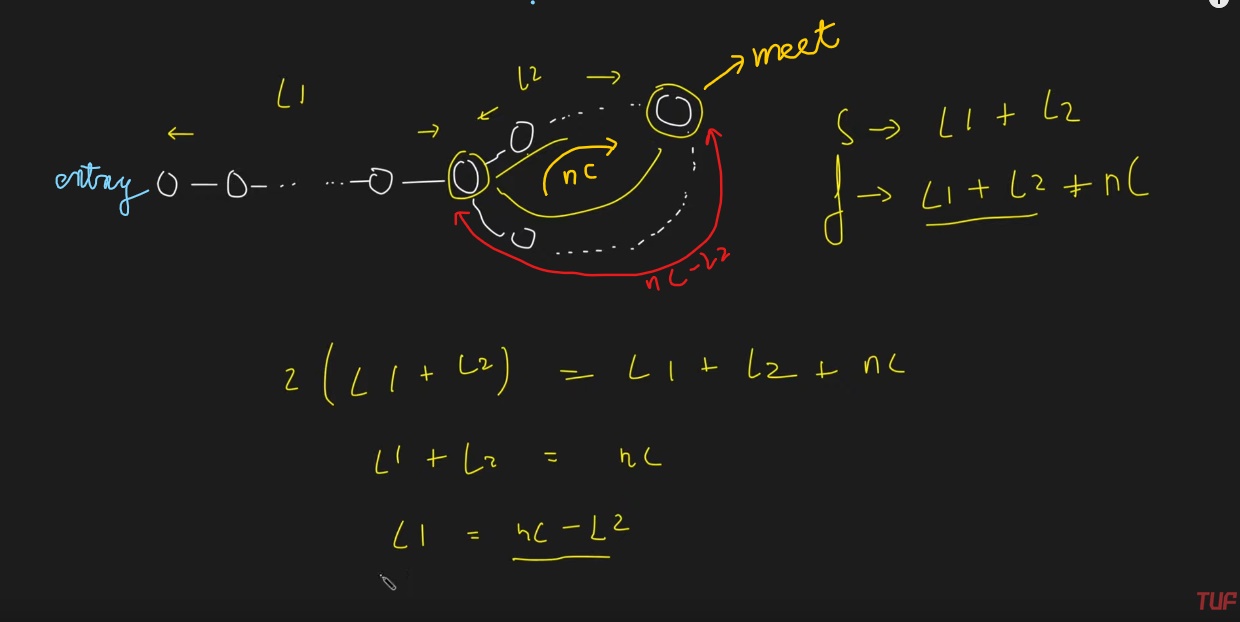 meet
L1
L2
entry
nC
nC-L2
S → L1 + L2
f → L1 + L2 + nC
2 (L1 + L2) = L1 + L2 + nC
L1 + L2 = nC
L1 = nC - L2
TUF